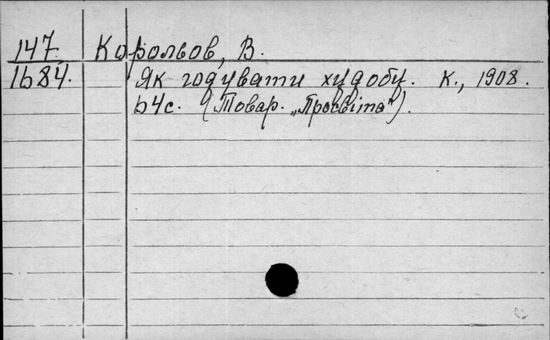 147. Корольов, В.
1684. Як годувати худобу. К., 1908.
64с. (Товар. „Просвіта").